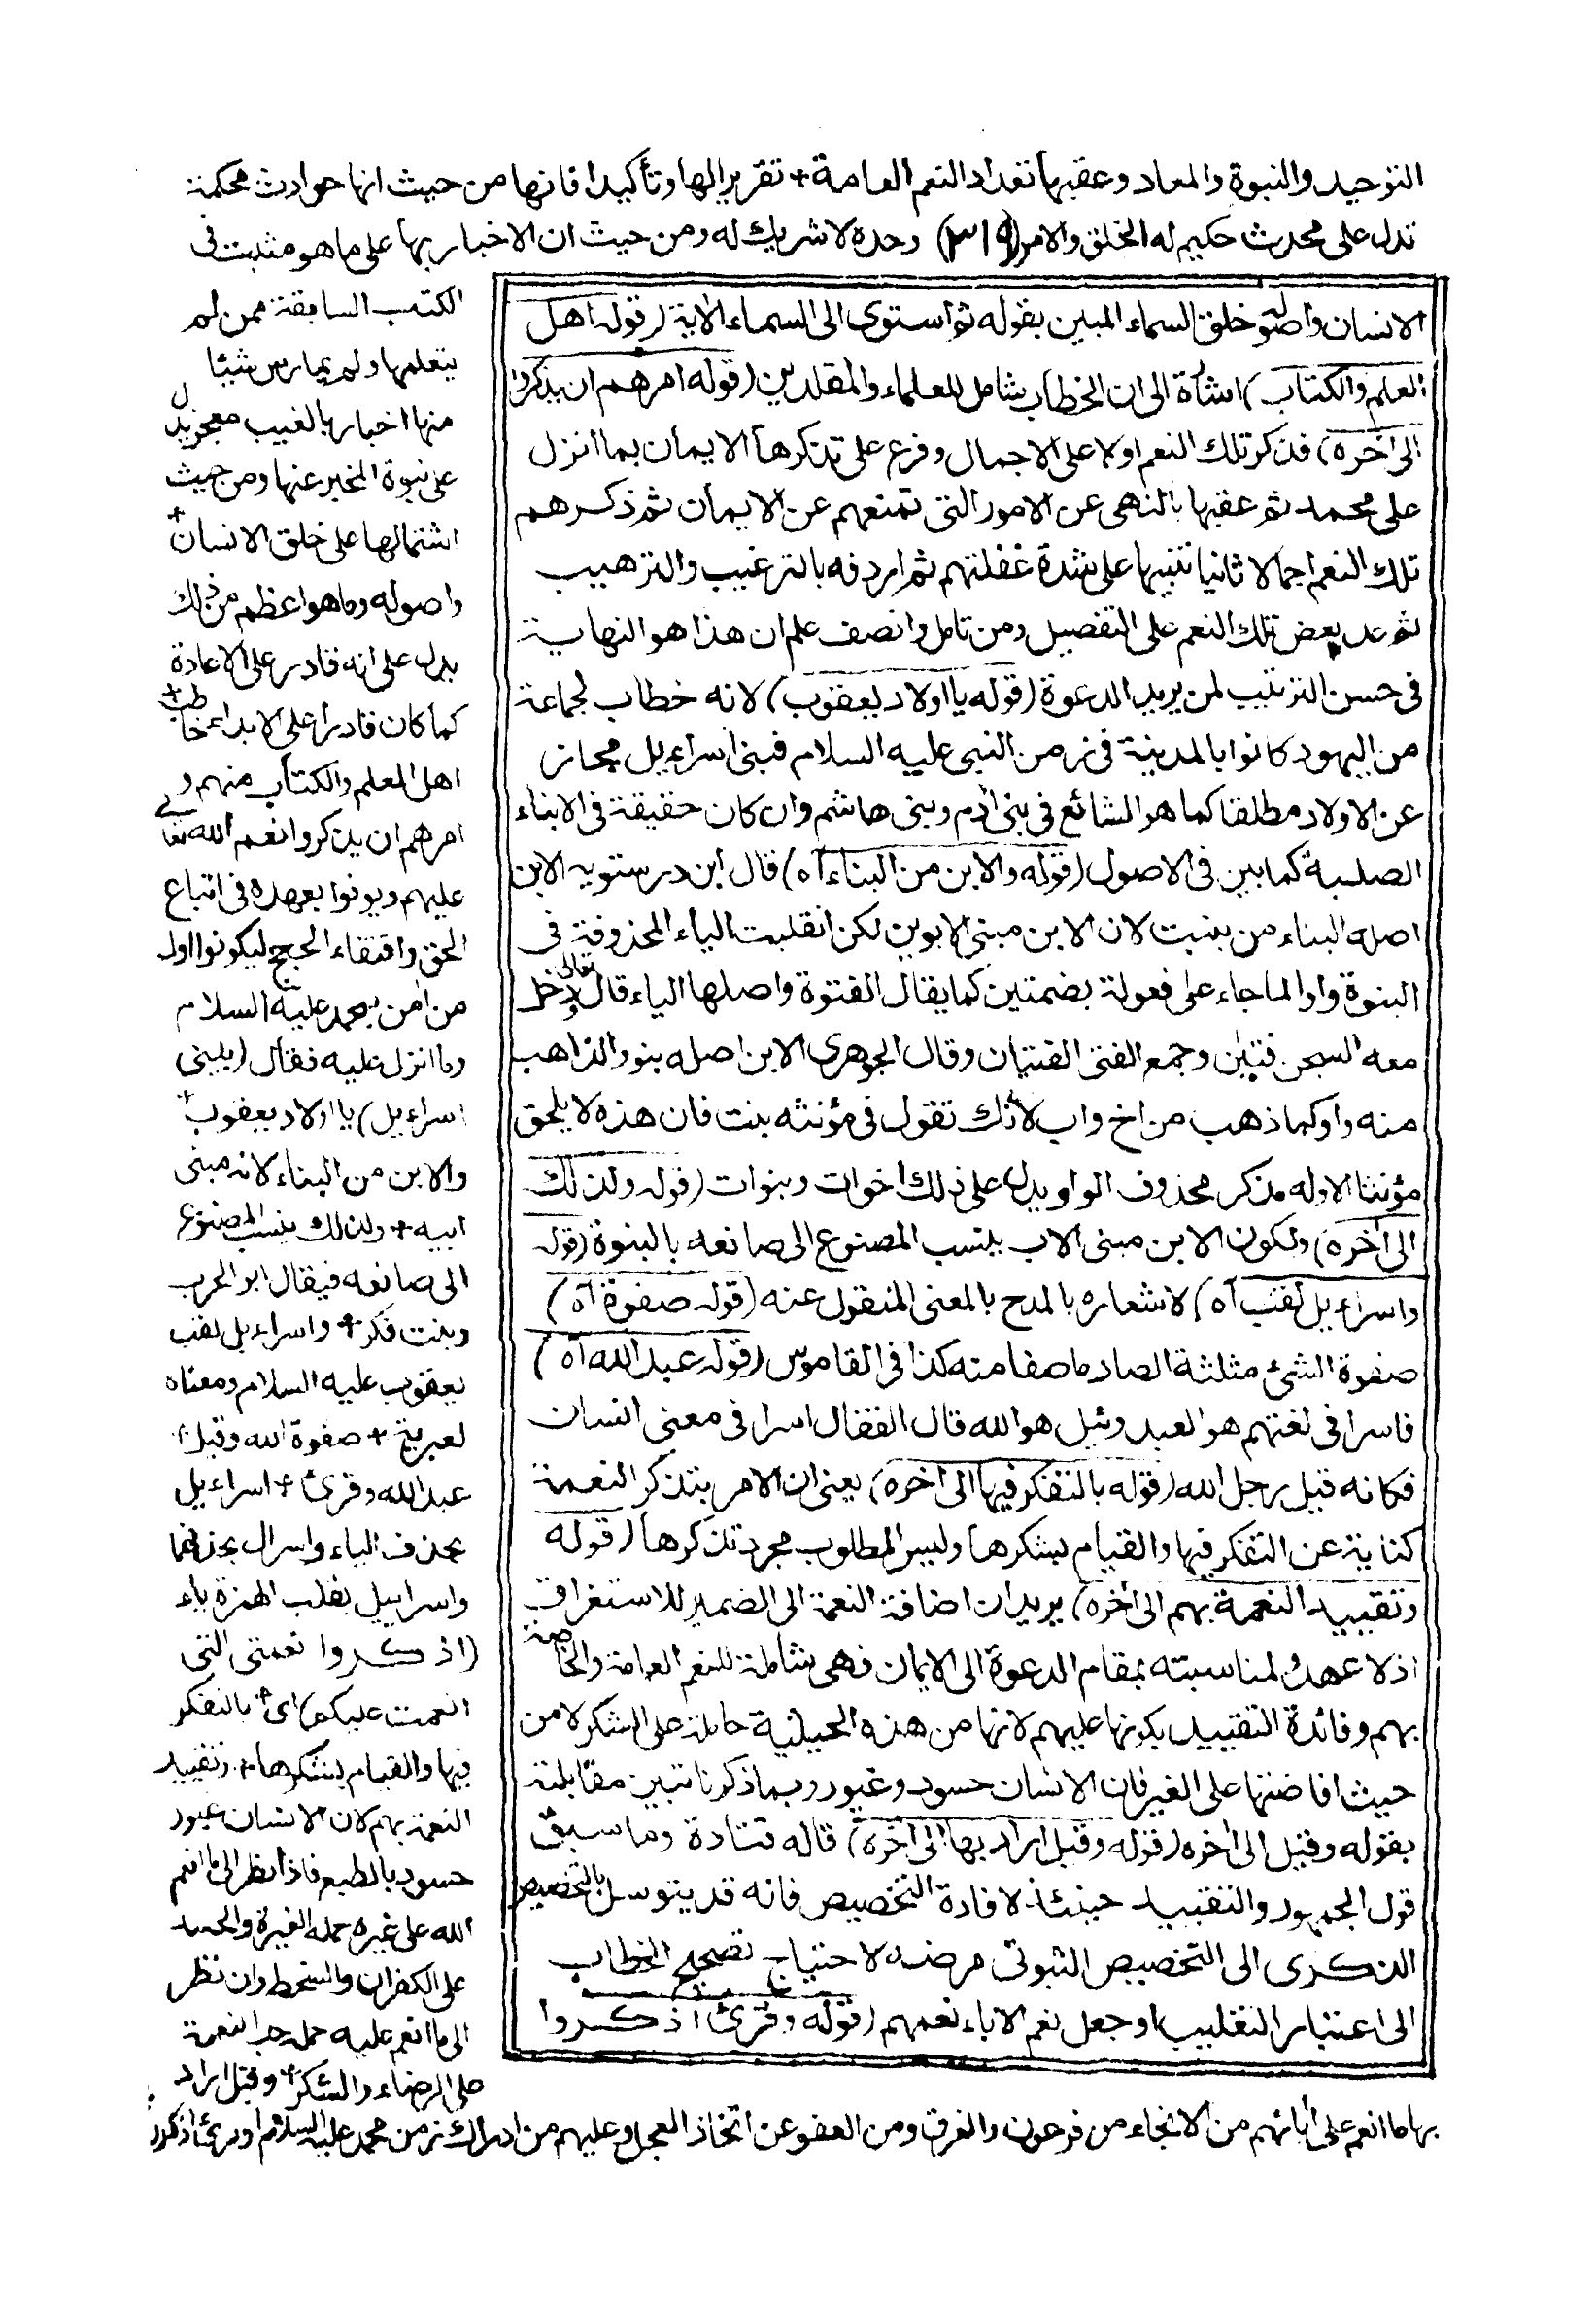 التوحيد والنبوة والمعاد وعقبها تعداد النعم العامة + تقريرا لها وتأكيدا فانها من حيث انها حوادث محكمة
تدل على محدث حكيم له الخلق والامر (٣١٩) وحده لا شريك له ومن حيث ان الاخبار بها على ما هو مثبت فى
الكتب السابقة ممن لم
يتعلمها ولم يمارس شيئا
منها اخبار بالغيب معجز يدل
على نبوة المخبر عنها ومن حيث
اشتمالها على خلق الانسان +
واصوله وما هو اعظم من ذلك
يدل على انه قادر على الاعادة
كما كان قادرا على الابداء خاطب +
اهل العلم والكتاب منهم و
امرهم ان يذكروا نعم الله تعالى
عليهم ويوفوا بعهده فى اتباع
الحق واقتفاء الحجج ليكونوا اول
من آمن بمحمد عليه السلام
وما انزل عليه فقال (يابنى
اسراءيل) يا اولاد يعقوب +
والابن من البناء لانه مبنى
ابيه + ولذلك ينسب المصنوع
الى صانعه فيقال ابو الحرب
وبنت فكر + واسراءيل لقب
يعقوب عليه السلام ومعناه
لعبرية + صفوة الله وقيل +
عبد الله وقرئ + اسراءيل
بحذف الياء واسرال بحذفهما
واسراييل بقلب الهمزة ياء
(اذكروا نعمتى التى
انعمت عليكم) اى + بالتفكر
فيها والقيام بشكرها + وتقييد
النعمة بهم لان الانسان غيور
حسود بالطبع فاذا نظر الى ما انعم
الله على غيره حمله الغيرة والحسد
على الكفران والسخط وان نظر
الى ما انعم عليه حمله حب النعمة
على الرضاء والشكر + وقيل اراد
بها ما انعم على آبائهم من الانجاء من فرعون والغرق ومن العفو عن اتخاذ العجل وعليهم من ادراك زمن محمد عليه السلام وقرئ اذكروا
الانسان واصوله خلق السماء المبين بقوله ثم استوى الى السماء الآية (قوله اهل
العلم والكتاب) اشارة الى ان الخطاب شامل للعلماء والمقلدين (قوله امرهم ان يذكروا
الى آخره) فذكر تلك النعم اولا على الاجمال وفرع على تذكرها الايمان بما انزل
على محمد ثم عقبها بالنهى عن الامور التى تمنعهم عن الايمان ثم ذكرهم
تلك النعم اجمالا ثانيا تنبيها على شدة غفلتهم ثم اردفه بالترغيب والترهيب
ثم عد بعض تلك النعم على التفصيل ومن تامل وانصف علم ان هذا هو النهاية
فى حسن الترتيب لمن يريد الدعوة (قوله يا اولاد يعقوب) لانه خطاب لجماعة
من اليهود كانوا بالمدينة فى زمن النبى عليه السلام فبنى اسراءيل مجاز
عن الاولاد مطلقا كما هو الشائع فى بنى آدم وبنى هاشم وان كان حقيقة فى الابناء
الصلبية كما بين فى الاصول (قوله والابن من البناء اه) قال ابن درستويه الابن
اصله البناء من بنيت لان الابن مبنى الابوين لكن انقلبت الياء المحذوفة فى
البنوة واوا لما جاء على فعولة بضمتين كما يقال الفتوة واصلها الياء قال تعالى ودخل
معه السجن فتيان وجمع الفتى الفتيان وقال الجوهرى الابن اصله بنو والذاهب
منه واو كما ذهب من اخ واب لانك تقول فى مؤنثه بنت فان هذه لا يلحق
مؤنثا الا وله مذكر محذوف الواو يدل على ذلك اخوات وبنوات (قوله ولذلك
الى آخره) ولكون الابن مبنى الاب ينسب المصنوع الى صانعه بالبنوة (قوله
واسراءيل لقب اه) لاشعاره بالمدح بالمعنى المنقول عنه (قوله صفوة اه)
صفوة الشئ مثلثة الصاد ما صفا منه كذا فى القاموس (قوله عبد الله اه)
فاسرا فى لغتهم هو العبد وئيل هو الله قال القفال اسرا فى معنى انسان
فكانه قيل رجل الله (قوله بالتفكر فيها الى آخره) يعنى ان الامر بتذكر النعمة
كناية عن التفكر فيها والقيام بشكرها وليس المطلوب مجرد تذكرها (قوله
وتقييد النعمة بهم الى آخره) يريد ان اضافة النعمة الى الضمير للاستغراق
اذ لا عهد ولمناسبته بمقام الدعوة الى الايمان فهى شاملة للنعم العامة والخاصة
بهم وفائدة التقييد بكونها عليهم لانها من هذه الحيثية حاملة على الشكر لا من
حيث افاضتها على الغير فان الانسان حسود وغيور وبما ذكرنا تبين مقابلته
بقوله وقيل الى آخره (قوله وقيل اراد بها الى آخره) قاله قتادة وما سبق
قول الجمهور والتقييد حينئذ لافادة التخصيص فانه قد يتوسل بالتخصيص
الذكرى الى التخصيص الثبوتى مرضه لاحتياج تصحيح الخطاب
الى اعتبار التغليب او جعل نعم الاباء نعمهم (قوله وقرئ اذكروا